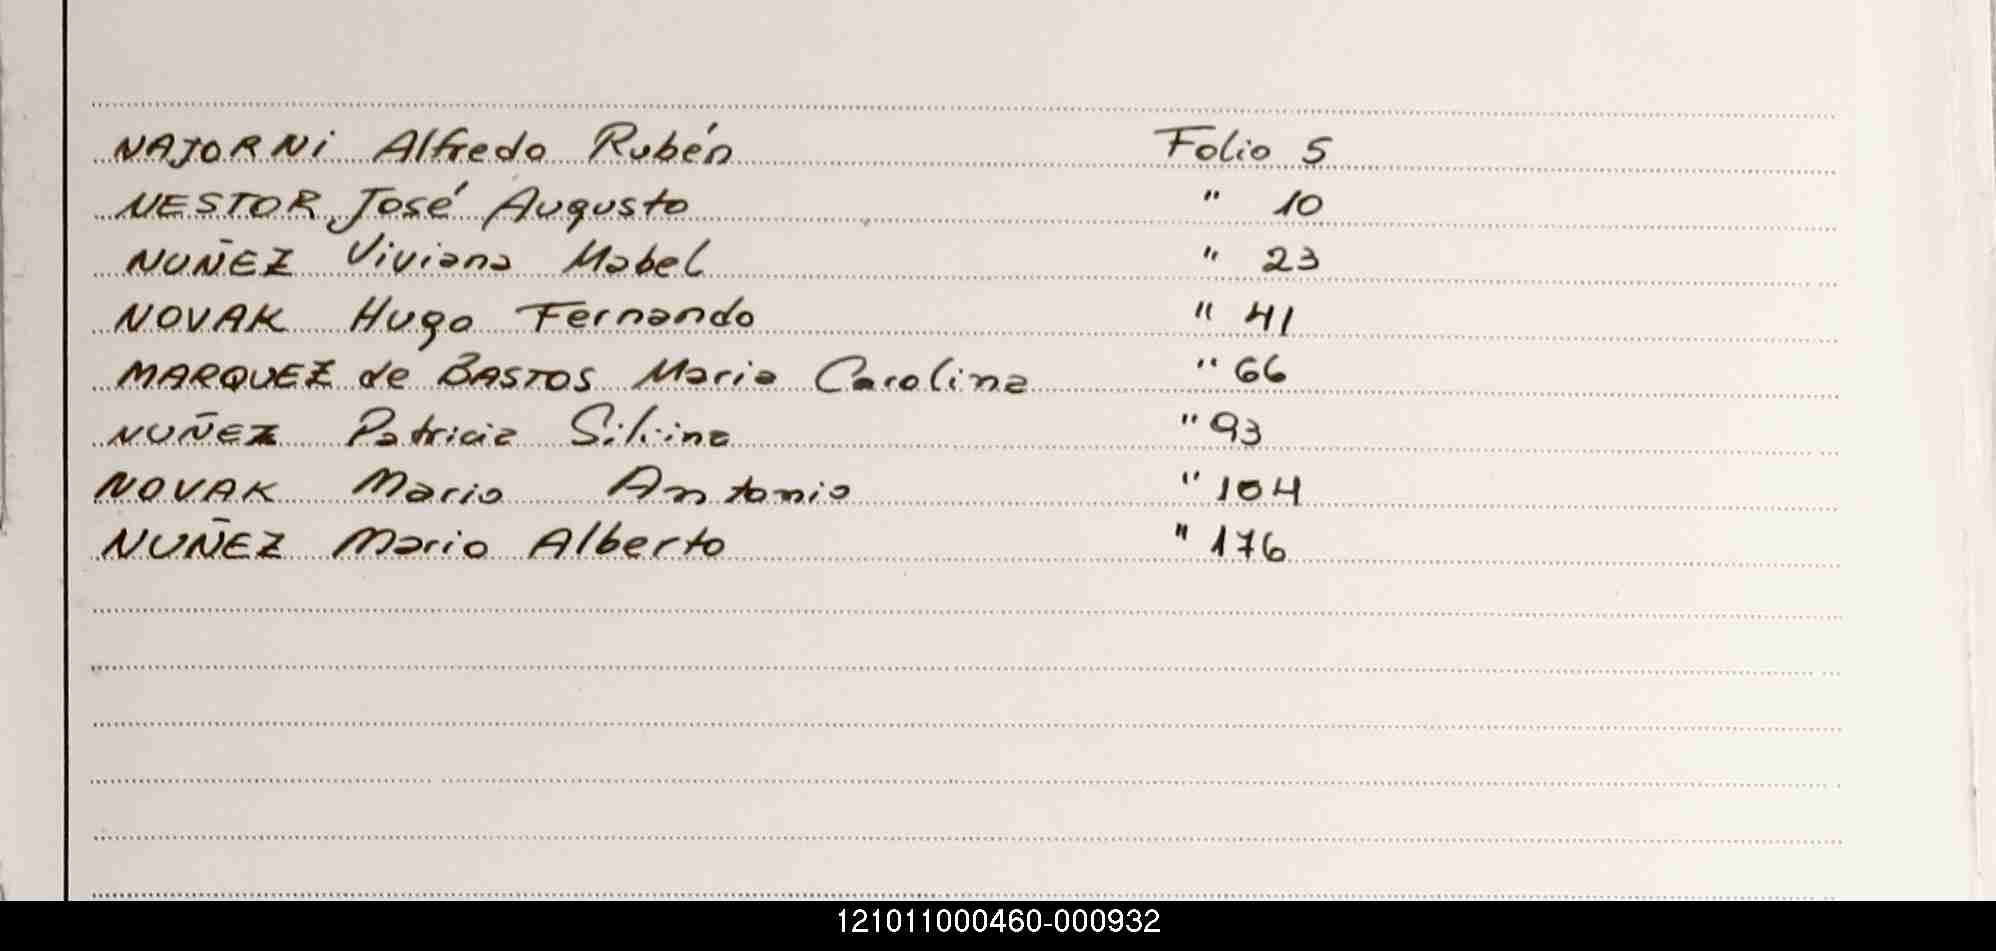 NAJORNi Alfredo Rubén Folio 5
NESTOR José Augusto " 10
NUÑEZ Viviana Mabel " 23
NOVAK Hugo Fernando " 41
MARQUEZ de BASTOS Maria Carolina " 66
NUÑEZ Patricia Silvina " 93
NOVAK Mario Antonio " 104
NUÑEZ Mario Alberto " 176
121011000460-000932